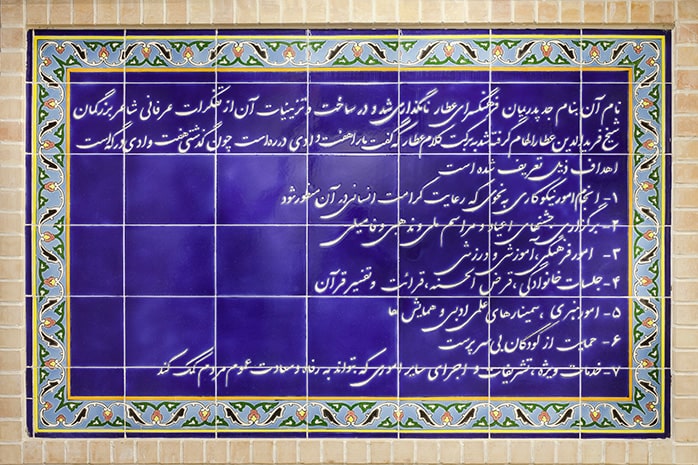 نام آن بنام جد پدریمان فرهنگسرای عطار نامگذاری شد و در ساخت و تزئینات آن از تفکرات عرفانی شاعر بزرگمان
شیخ فریدالدین عطار الهام گرفته شد به برکت کلام عطار که گفت ما را هفت وادی در ره است چون گذشتی هفت وادی درگه است
اهداف ذیل تعریف شده است
۱- انجام امور نیکوکاری به نحوی که رعایت کرامت انسانی در آن منظور شود
۲- برگزاری جشنهای اعیاد و مراسم ملی و مذهبی و فامیلی
۳- امور فرهنگی، آموزشی و ورزشی
۴- جلسات خانوادگی، قرض الحسنه، قرائت و تفسیر قرآن
۵- امور هنری، سمینارهای علمی ادبی و همایش ها
۶- حمایت از کودکان بی سرپرست
۷- خدمات ویژه، تشریفات و اجرای سایر اموری که بتواند به رفاه و سعادت عموم مردم کمک کند